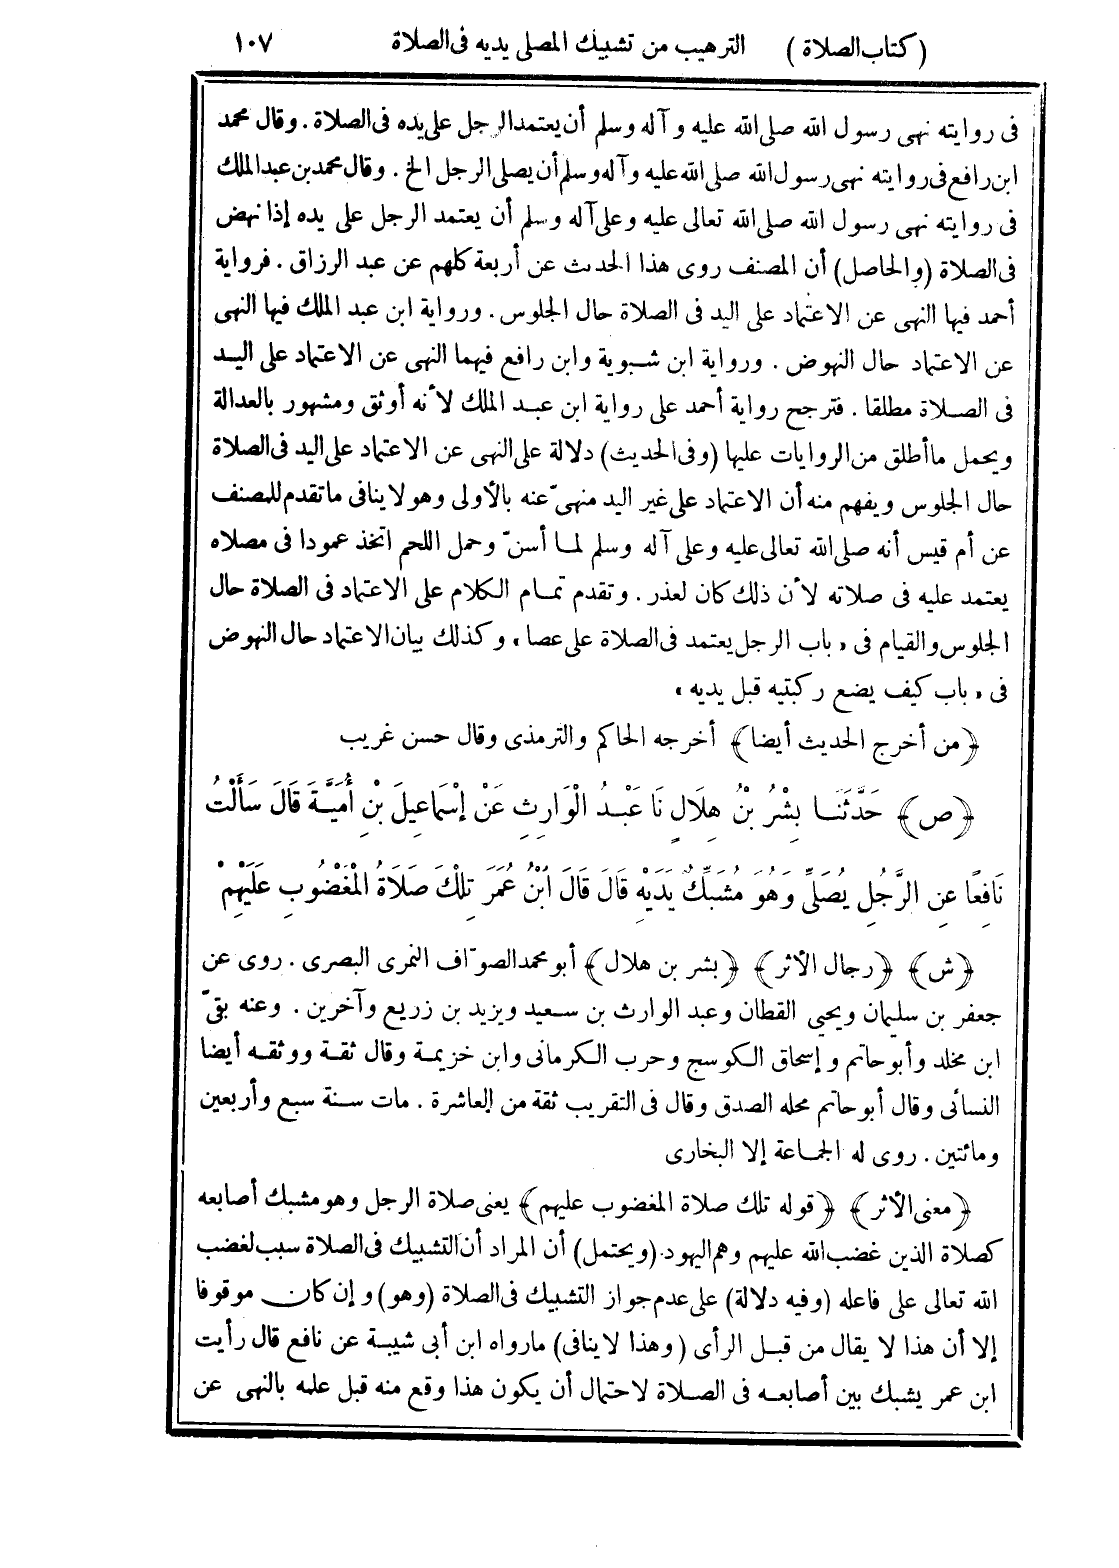 (كتاب الصلاة) الترهيب من تشبيك المصلى يديه فى الصلاة ١٠٧
فى روايته نهى رسول الله صلى الله عليه وآله وسلم أن يعتمد الرجل على يده فى الصلاة. وقال محمد
ابن رافع فى روايته نهى رسول الله صلى الله عليه وآله وسلم أن يصلى الرجل الخ. وقال محمد بن عبد الملك
فى روايته نهى رسول الله صلى الله تعالى عليه وعلى آله وسلم أن يعتمد الرجل على يده إذا نهض
فى الصلاة (والحاصل) أن المصنف روى هذا الحدث عن أربعة كلهم عن عبد الرزاق. فرواية
أحمد فيها النهى عن الاعتماد على اليد فى الصلاة حال الجلوس. ورواية ابن عبد الملك فيها النهى
عن الاعتماد حال النهوض. ورواية ابن شبوية وابن رافع فيهما النهى عن الاعتماد على اليد
فى الصلاة مطلقا. فترجح رواية أحمد على رواية ابن عبد الملك لأنه أوثق ومشهور بالعدالة
ويحمل ما أطلق من الروايات عليها (وفى الحديث) دلالة على النهى عن الاعتماد على اليد فى الصلاة
حال الجلوس ويفهم منه أن الاعتماد على غير اليد منهىّ عنه بالأولى وهو لا ينافى ما تقدم للمصنف
عن أم قيس أنه صلى الله تعالى عليه وعلى آله وسلم لما أسنّ وحمل اللحم اتخذ عمودا فى مصلاه
يعتمد عليه فى صلاته لأن ذلك كان لعذر. وتقدم تمام الكلام على الاعتماد فى الصلاة حال
الجلوس والقيام فى «باب الرجل يعتمد فى الصلاة على عصا» وكذلك بيان الاعتماد حال النهوض
فى «باب كيف يضع ركبتيه قبل يديه»
﴿من أخرج الحديث أيضا﴾ أخرجه الحاكم والترمذى وقال حسن غريب
﴿ص﴾ حَدَّثَنَا بِشْرُ بْنُ هِلَالٍ نَا عَبْدُ الْوَارِثِ عَنْ إِسْمَاعِيلَ بْنِ أُمَيَّةَ قَالَ سَأَلْتُ
نَافِعًا عَنِ الرَّجُلِ يُصَلِّى وَهُوَ مُشَبِّكٌ يَدَيْهِ قَالَ قَالَ ابْنُ عُمَرَ تِلْكَ صَلَاةُ الْمَغْضُوبِ عَلَيْهِمْ
﴿ش﴾ ﴿رجال الأثر﴾ ﴿بشر بن هلال﴾ أبو محمد الصوّاف النمرى البصرى. روى عن
جعفر بن سليمان ويحيى القطان وعبد الوارث بن سعيد ويزيد بن زريع وآخرين. وعنه بقىّ
ابن مخلد وأبو حاتم وإسحاق الكوسج وحرب الكرمانى وابن خزيمة وقال ثقة ووثقه أيضا
النسائى وقال أبو حاتم محله الصدق وقال فى التقريب ثقة من العاشرة. مات سنة سبع وأربعين
ومائتين. روى له الجماعة إلا البخارى
﴿معنى الأثر﴾ ﴿قوله تلك صلاة المغضوب عليهم﴾ يعنى صلاة الرجل وهو مشبك أصابعه
كصلاة الذين غضب الله عليهم وهم اليهود. (ويحتمل) أن المراد أن التشبيك فى الصلاة سبب لغضب
الله تعالى على فاعله (وفيه دلالة) على عدم جواز التشبيك فى الصلاة (وهو) وإن كان موقوفا
إلا أن هذا لا يقال من قبل الرأى (وهذا لا ينافى) ما رواه ابن أبى شيبة عن نافع قال رأيت
ابن عمر يشبك بين أصابعه فى الصلاة لاحتمال أن يكون هذا وقع منه قبل علمه بالنهى عن